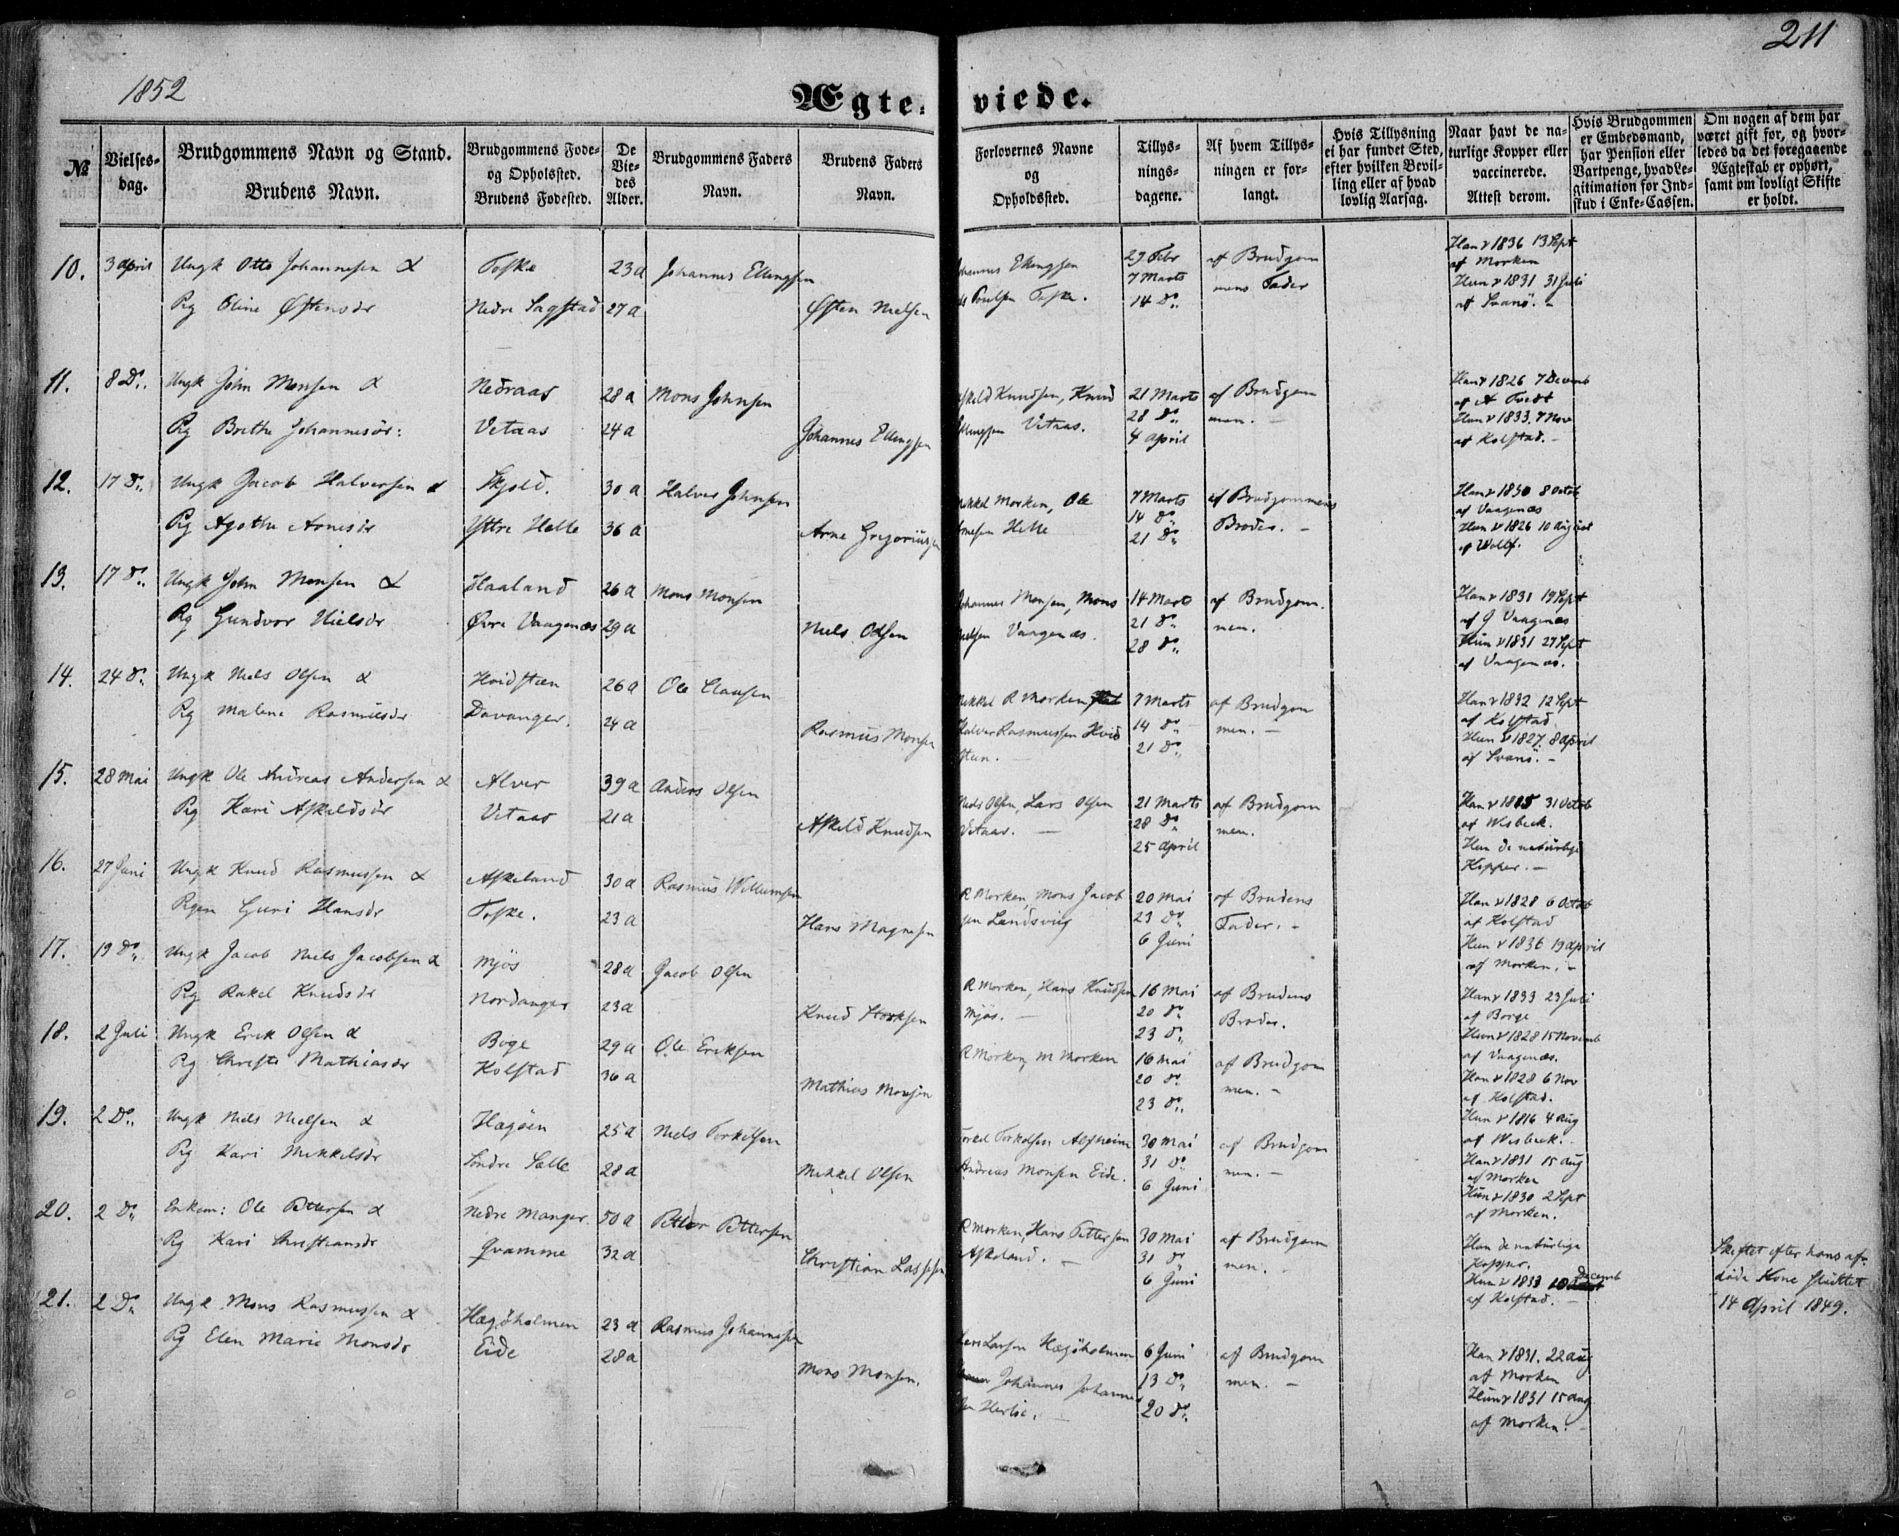 211
1852
Ægte-viede.
№
Vielses-
dag.
Brudgommens Navn og Stand.
Brudens Navn.
Brudgommens Føde-
og Opholssted.
Brudens Fødested.
De
Vie-
des
Alder.
Brudgommens Faders
Navn.
Brudens Faders
Navn.
Forlovernes Navne
og
Opholdssted.
Tillys-
nings-
dagene.
Af hvem Tillys-
ningen er for-
langt.
Hvis Tillysning
ei har fundet Sted,
efter hvilken Bevil-
ling eller af hvad
lovlig Aarsag.
Naar havt de na-
turlige Kopper eller
vaccinerede.
Attest derom.
Hvis Brudgommen
er Embedsmand,
har Pension eller
Vartpenge, hvad Le-
gitimation for Ind-
skud i Enke-Cassen.
Om nogen af dem har
været gift før, og hvor-
ledes da det foregaaende
Ægteskab er ophørt,
samt om lovligt Skifte
er holdt.
10. 3 April Ungk Otto Johannesen & Toske 23 a Johannes Ellingsen
Pig Oline Østensdr Nedre Sagstad 27 a Østen Nielsen
Ellingsen Toske.
29 Febr
7 Marts
14 Do.
af Brudgom
mens Fader
Han v 1836 13 Sept
af Morken
Hun v 1831 31 Juli
af Svanø. -
11. 8 Do. Ungk John Monsen & Nedraas 28 a Mons Johnsen
Pig Brithe Johannesdr: Vetaas 24 a Johannes Ellingsen
Knudsen, Knud
Vetaas.
21 Marts
28 Do
4 April
af Brudgom
men. -
Han v 1826 7 Decemb
af A Tvedt
Hun v 1833. 7 Nov
af Kolstad. -
12. 17 Do. Ungk Jacob Halversen & Skjold. 30 a Halver Johnsen
Pig Agathe Arnesdr Yttre Helle 36 a Arne Gregoriusen
Morken, Ole
Helle
7 Marts
14 Do
21 Do
af Brudgommens
Broder. -
Han v 1830 8 Octob
af Vaagenæs
Hun v 1826 10 August
af Wolff.
13. 17 Do. Ungk John Monsen & Haaland 26 a Mons Monsen
Pig Gundvor Nielsdr Øvre Vaagenæs 29 a Niels Olsen
Johannes Monsen, Mons
Nielsen Vaagenæs.
14 Marts
21 Do
28 Do.
af Brudgom.
men.
Han v 1831 19 Sept
af J Vaagenæs
Hun v 1831 27 Sept
af Vaagenæs.
14. 24 Do. Ungk Niels Olsen & Hvidsteen 26 a Ole Clausen
Pig Malene Rasmusdr Davanger. 24 a Rasmus Monsen
Mikkel R Morken
Halver Rasmussen Hvid
steen. -
7 Marts
14 Do
21 Do.
af Brudgom
men. -
Han v 1832 12 Sept
af Kolstad
Hun v 1827. 8 April
af Svanø. -
15. 28 Mai Ungk Ole Andreas Andersen & Alver 39 a Anders Olsen
Pig Kari Askeldsdr Vetaas 21 a Askeld Knudsen
Niels Olsen, Lars Olsen
Vetaas. -
21 Marts
28 Do
25 April
af Brudgom
men.
Han v 1815 31 Octob
af Wisbeck.
Hun de naturlige
Kopper. -
16. 27 Juni Ungk Knud Rasmussen & Askeland 30 a Rasmus Willumsen
Pigen Guri Hansdr Toske. 23 a Hans Magnesen
R Morken, Mons Jacob
sen Landsvig
20 Mai
23 Do
6 Juni
af Brudens
Fader. -
Han v 1828 6 Octob
af Kolstad
Hun v 1836 19 April
af Morken. -
17. 19 Do. Ungk Jacob Niels Jacobsen & Mjøs 28 a Jacob Olsen
Pig Rakel Knudsdr Nordanger 23 a Knud
R Morken, Hans Knudsen
Mjøs. -
16 Mai
20 Do
23 Do.
af Brudens
Broder.
Han v 1833 23 Juli
af Borge
Hun v 1828 15 Novemb
af Vaagenæs.
18. 2 Juli Ungk Erik Olsen & Boge 29 a Ole Eriksen
Pig Christi Mathiasdr Kolstad 36 a Mathias Monsen
R Morken, M Morken
16 Mai
20 Do
23 Do.
af Brudgom
men. -
Han v 1828 6 Nov
af Kolstad.
Hun v 1816 4 Aug
af Wisbeck.
19. 2 Do. Ungk Niels Nielsen & Hagøen 25 a Niels Torkelsen
Pig Kari Mikkelsdr Søndre Sælle 28 a Mikkel Olsen
Torkel Torkelsen Alfheim
Andreas Monsen Eide.
30 Mai
31 Do
6 Juni
af Brudgom
men. -
Han v 1831 15 Aug
af Morken
Hun v 1830 2 Sept
af Morken.
20. 2 Do. Enkem: Ole Pettersen & Nedre Manger 50 a Petter Pettersen
Pig Kari Christiansdr Qvamme 32 a Christian Lassesen
R Morken, Hans Pettersen
Askeland. -
30 Mai
31 Do
6 Juni
af Brudgom
men.
Han de naturlige
Kopper.
Hun v 1833 10 Decemb
af Kolstad. -
Skiftet efter hans af-
døde Kone sluttet
14 April 1849.
21. 2 Do. Ungk Mons Rasmussen & Hægøholmen 23 a Rasmus Johannesen
Pig Elen Marie Monsdr Eide 28 a Mons Monsen.
Lars Larsen Hægøholmen
Johannes Johannes
sen Herlø. -
6 Juni
13 Do.
20 Do.
af Brudgom
men. -
Han v 1831. 22 Aug
af Morken
Hun v 1831 15 Aug
af Morken.